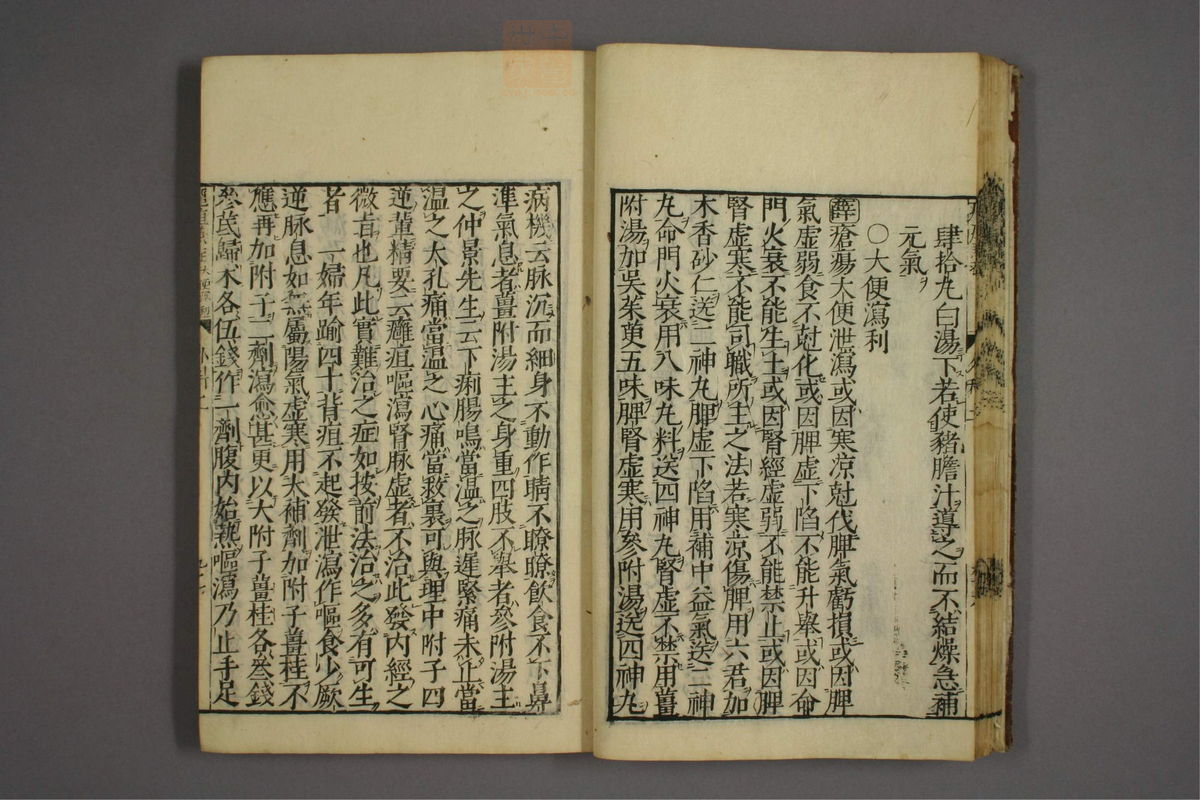 肆拾丸白湯下若使豬膽汁導之而不結燥急補
元氣
○大便瀉利
薛瘡瘍大便泄瀉或因寒涼尅伐脾氣虧損或因脾
氣虛弱食不尅化或因脾虛下陷不能升舉或因命
門火衰不能生土或因腎經虛弱不能禁止或因脾
腎虛寒不能司職所主之法若寒涼傷脾用六君加
木香砂仁送二神丸脾虛下陷用補中益氣送二神
丸命門火衰用八味丸料送四神丸腎虛不禁用薑
附湯加吳茱萸五味脾腎虛寒用參附湯送四神丸
病機云脉沉而細身不動作睛不瞭瞭飲食不下鼻
準氣息者薑附湯主之身重四肢不舉者參附湯主
之仲景先生云下痢腸鳴當溫之脉遲緊痛未止當
溫之大孔痛當溫之心痛當救裏可與理中附子四
逆輩精要云癰疽嘔瀉腎脉虛者不治此發內經之
微旨也凡此實難治之症如按前法治之多有可生
者一婦年踰四十背疽不起發泄瀉作嘔食少厥
逆脉息如無屬陽氣虛寒用大補劑加附子薑桂不
應再加附子二劑瀉愈甚更以大附子薑桂各叁錢
參芪歸木各伍錢作一劑腹內始熱嘔瀉乃止手足